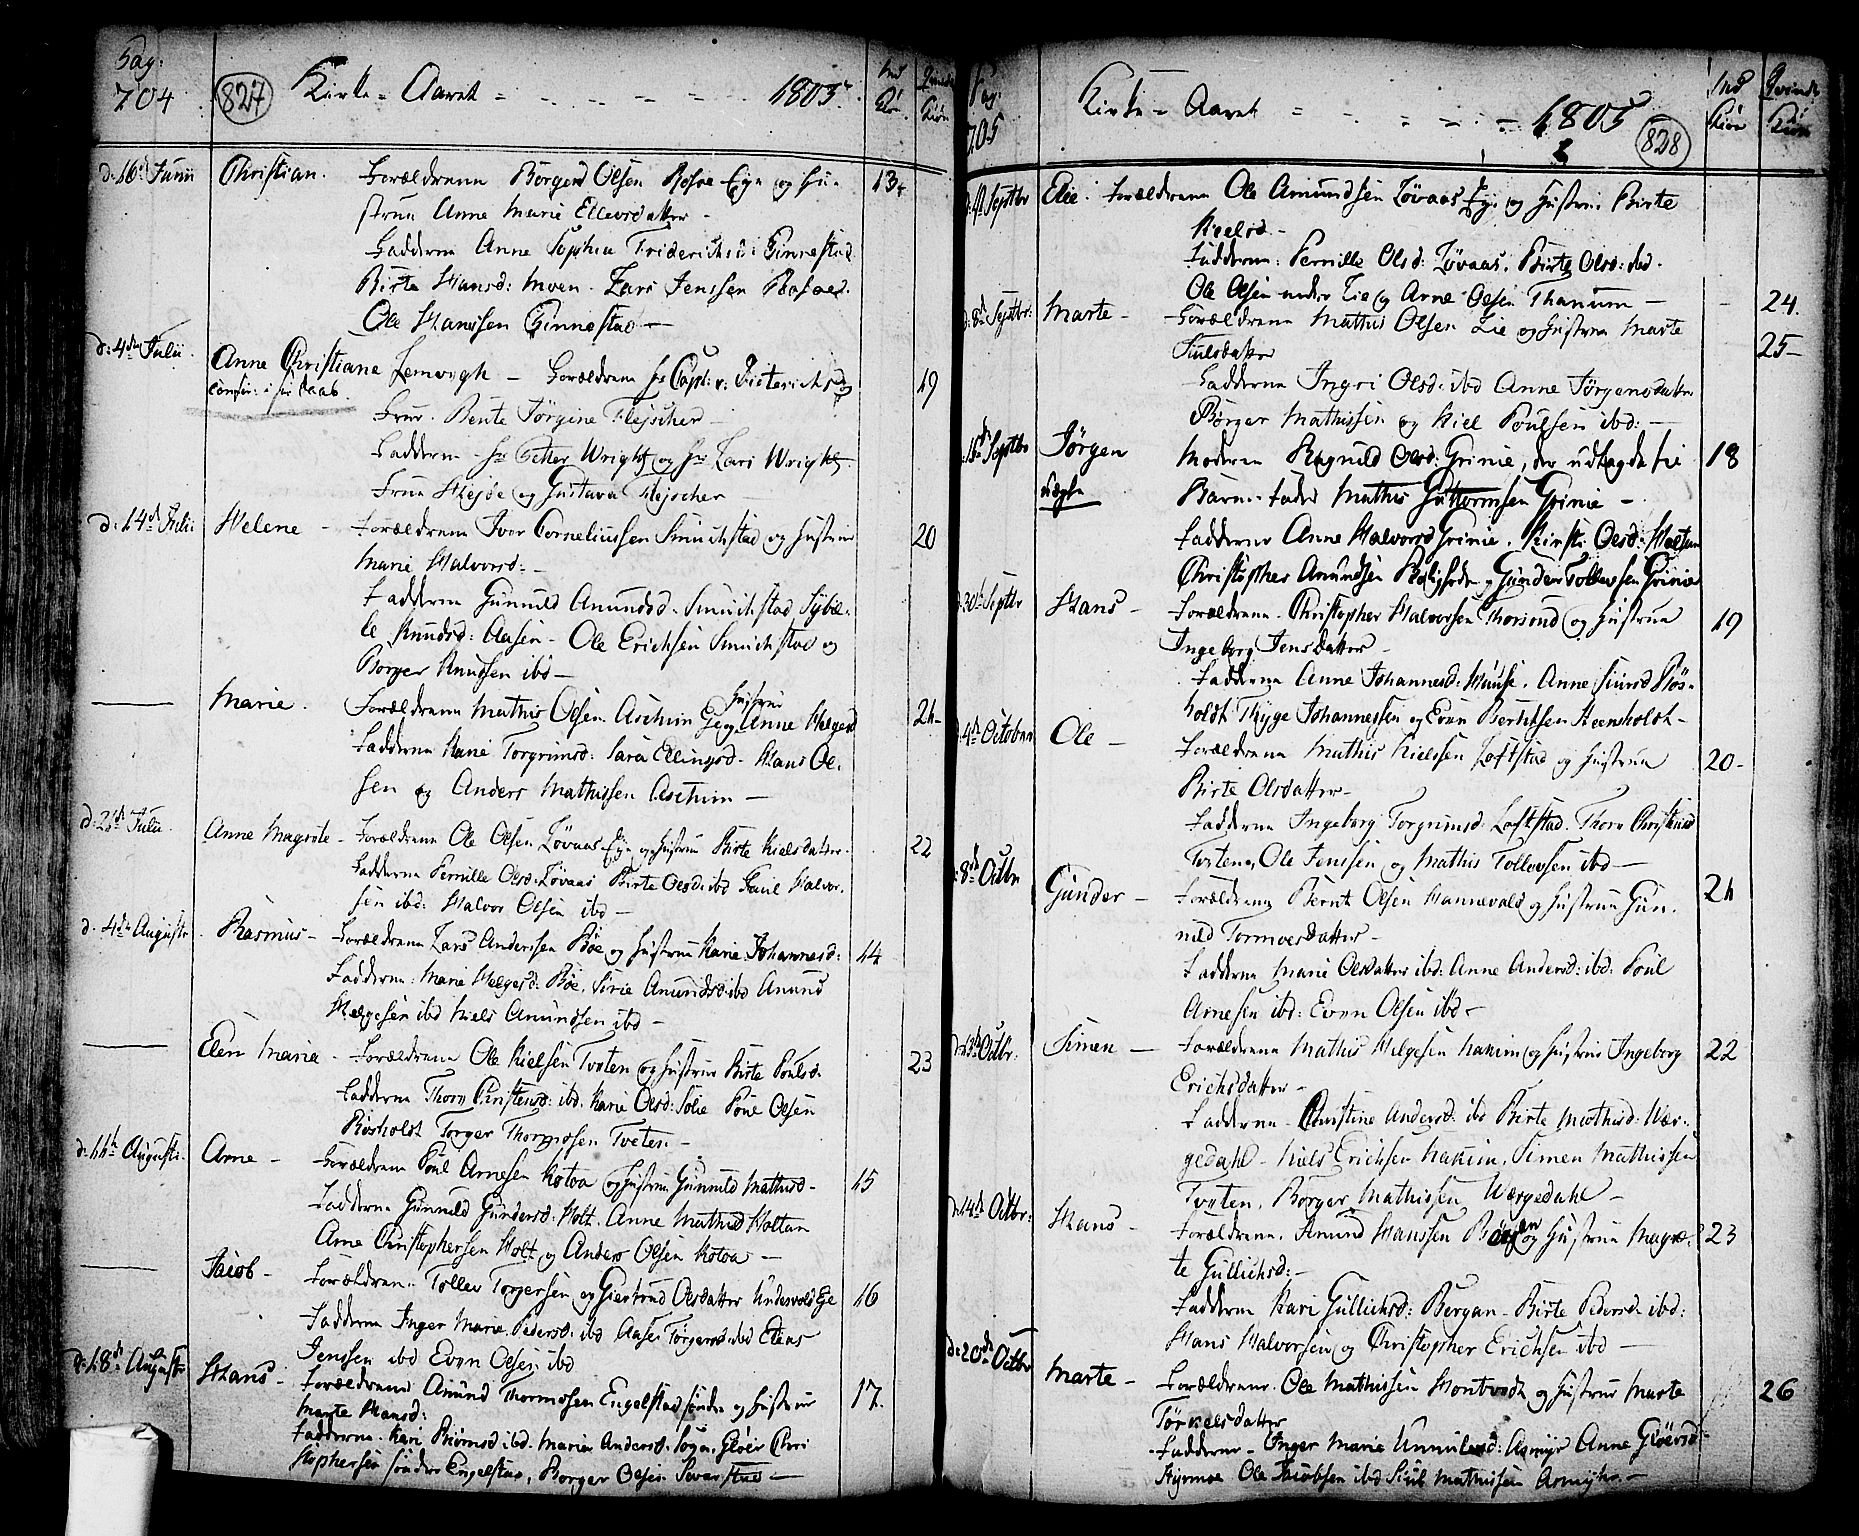 Pag: 704
827
Kirke-Aaret - 1805.
Qvinde Kiön
d: 16de Junii Christian. Forældrene Börger Olsen Eje og Hu-
struе Anne Marie Ellevsdatter -
Fadderne Anne Sophia Friderichsd: Ginnestad
Birte Hansd: Moen. Lars Jenssen
13.
Ole Hanssen Ginnestad -
d: 4de Julii. Anne Christiane Lemvigh - Forældrene Hr Capt: v:
19
Frue. Bente Jörgine Flejscher -
Fadderne Hr Petter Wright og Hr Lars Wright.
Frue Hejde og Gustava Flejscher -
d: 14de Julii Helene - Forældrene Iver Corneliussen Smuchstad og Hustrue
20
Marie Halvorsd: -
Fadderne Gunnild Amundsd. Smuchstad Sybil-
le Knudsd: Aasen - Ole Erichsen Smuchstad og
Börger Knudsen ibd -
Marie. Forældrene Mathis Olsen Aschim Eje og Hustrue Anne Helgesd
21-
Fadderne Karie Torgrimsd: Sara Ellingsd. Hans Ol-
sen og Anders Mathissen Aschim -
d: 21de Julii. Anne Magrete - Forældrene Ole Olsen Lövaas Eje og Hustrue Birte Kielsdatter.
22
Fadderne Pernille Olsd: Lövaas Birte Olsd: ibd Halvor-
sen ibd: Halvor Olsen ibd -
d. 4de Augusti. Rasmus - Forældrene Lars Anderssen Böe og Hustrue Karie Johannesd:
14
Fadderne: Marie Helgesd: Böe. Sirie Amundsd: ibd Amund
Helgesen ibd Niels Amundsen ibd -
Elen Marie - Forældrene Ole Kielsen Tveten og Hustrue Birte Poulsd.
23
Fadderne Thore Christensd: ibd. Karie Olsd: Solie Poul Olsen
Rösholdt Torger Thormosen Tveten -
d: 11te Augusti. Arne - Forældrene Poul Arnesen Kotoa og Hustrue Gunnild Mathisd -
15
Fadderne Gunnild Gundersd: Holt. Anne Mathisd Holtan
Arne Christophersen Holt og Anders Olsen Kotoa -
Jacob - Forældrene Tollev Torgersen og Giertrud Olsdatter Undersvold Eje
16
Fadderne Inger Marie Pedersd: ibd Aase Torgersd: ibd Elias
Jenssen ibd Even Olsen ibd
d: 18de Augusti Hans - Forældrene Amund Thormosen Engelstad söndre og Hustrue
17.
Marte Hansd:
Fadderne. Kari Biörnsd: ibd. Maria Andersd: Sogn. Chri
stophersen söndre Engelstad, Börger Olsen -
Pag. 705
Kirke-Aaret - 1805
828
Kiön
Qvinde Kiön
d: 1te Septbr Elie. Forældrene Ole Amundsen Lövaas Eje og Hustrue Birte
Kielsd -
Fadderne: Pernille Olsd: Lövaas. Birte Olsd: ibd.
Ole Olsen nedre Lie og Arne Olsen Thanum -
24.
d: 8de Septbr: Marte - Forældrene Mathis Olsen Lie og Hustrue Marte
25-
Siulsdatter
Fadderne Ingri Olsd: ibd Anne Jörgensdatter
Börger Mathissen og Kiel Poulsen ibd: -
Septbr Jörgen Moderen Ragnild Olsd: Grinie, der udlagde til
18
uægte Barne-Fader Mathis Guttormsen Grinie -
Fadderne Anne Halvorsd Grinie. Kirsti Olsd: Holtan
Christopher Amundsen Boligste og Gunder Tollevsen Grinie
d: 30de Septbr Hans - Forældrene Christopher Halvorsen Thorsund og Hustrue
19
Ingeborg Jensdatter -
Fadderne Anne Johannesd: Anne Simensd Rös-
holdt Thyge Johannessen og Even Berntsen Steensholdt -
d: 4de October Ole - Forældrene Mathis Nielssen Loftstad og Hustrue
20-
Birte Olsdatter -
Fadderne Ingeborg Torgrimsd: Loftstad. Thore Christensd
Tveten, Ole Jenssen og Mathis Tollevsen ibd -
d: 8de Octbr Gunder - Forældrene Bernt Olsen Hannevold og Hustrue Gun-
21
nild Tormoesdatter -
Fadderne Marie Olsdatter ibd: Anne Andersd: ibd: Poul
Arnesen ibd: Even Olsen ibd -
Octbr: Simen - Forældrene Mathis Helgesen Kakim og Hustrue Ingeborg
22
Erichsdatter -
Fadderne Christine Andersd: ibd Birte Mathisd: Vær-
gedahl - Niels Erichsen Kakim. Simen Mathissen
Tveten. Börger Mathissen Wærgedahl -
d: 14de Octbr: Hans - Forældrene. Amund Hanssen og Hustrue Magre-
23
te Gullichsd: -
Fadderne Kari Gullichsd: Bergan - Birte Pedersd: ibd:
Hans Halvorsen og Christopher Erichsen ibd -
d: 20de Octbr Marte - Forældrene. Ole Mathissen Hontvedt og Hustrue Marte
26
Törkelsdatter
Fadderne - Inger Marie Asmyr Anne
Ole Jacobsen ibd Siul Mathissen Asmyhr. -